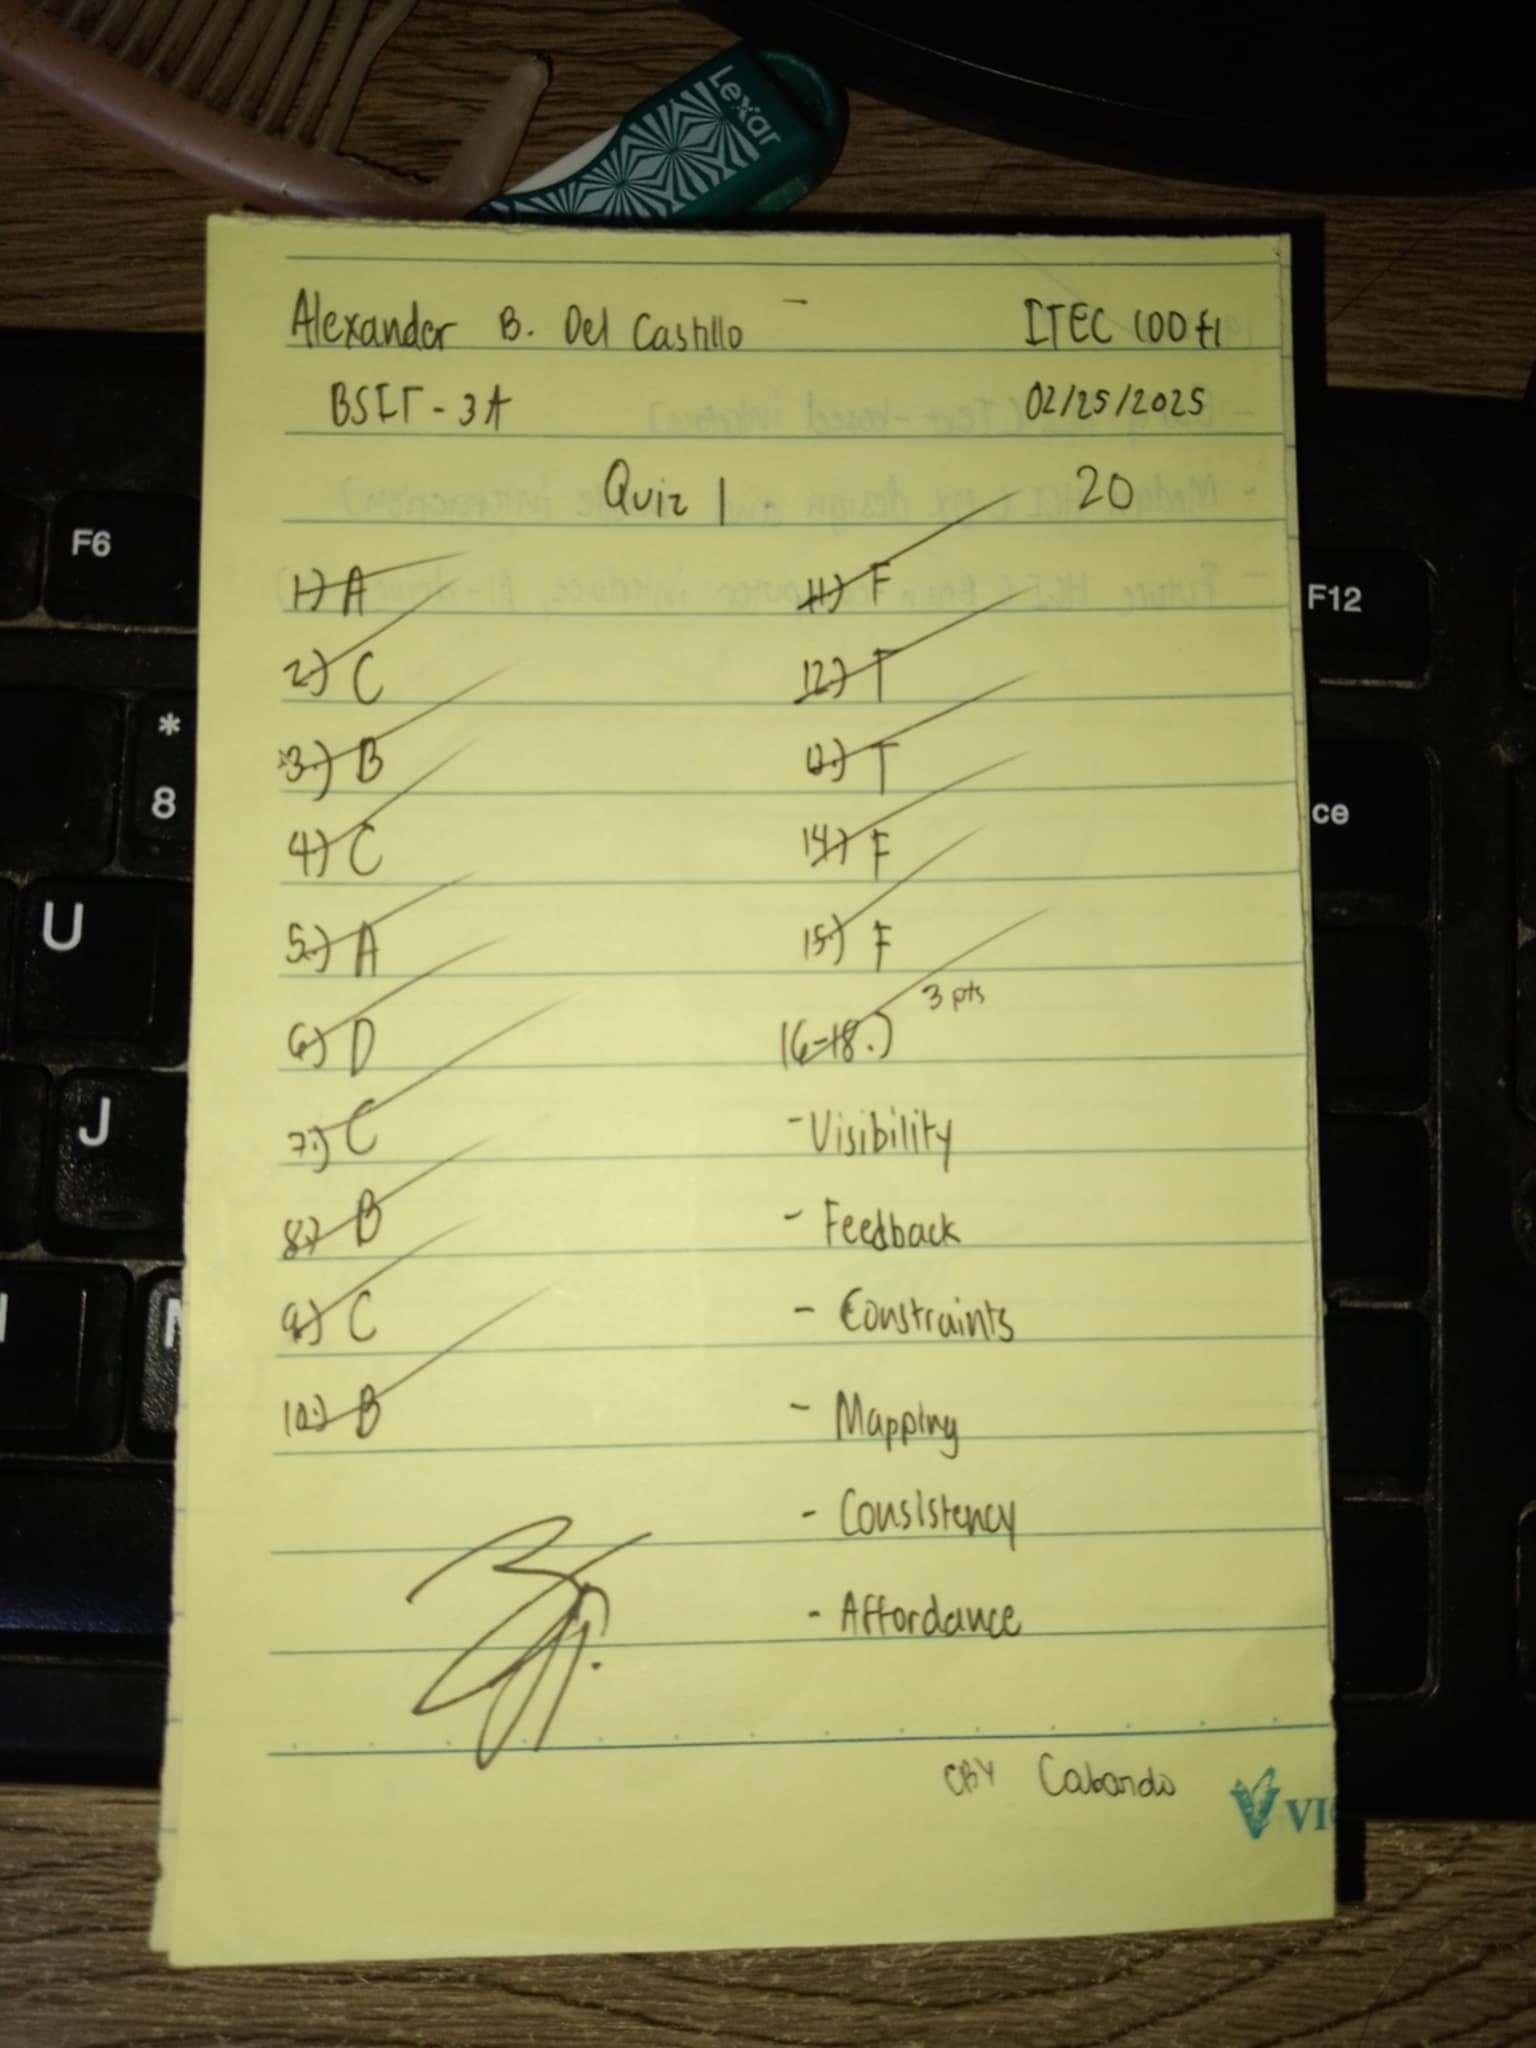 Lexar
Alexander B. Del Castillo ITEC 100 f1
BSIT - 3A 02/25/2025
Quiz 1 20
1.) A
2.) C
3.) B
4.) C
5.) A
6.) D
7.) C
8.) B
9.) C
10.) B
11.) F
12.) T
13.) T
14.) F
15.) F
16-18.) 3 pts
- Visibility
- Feedback
- Constraints
- Mapping
- Consistency
- Affordance
CBY Cabando
VI
F6
*
8
U
J
F12
ce